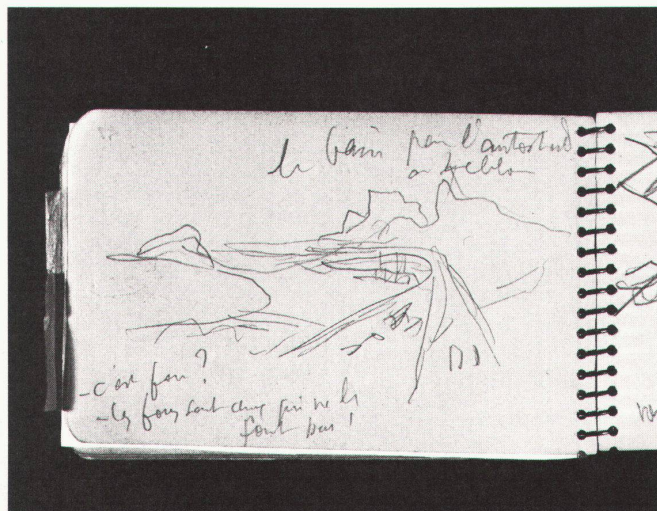 le bain pour l'autostrade
au Leblon
- c'est fou ?
- les fous sont ceux qui ne les
font pas !